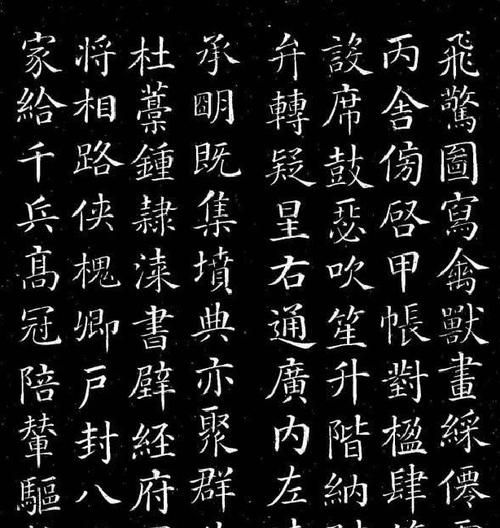 飛驚圖寫禽獸畫綵僊
丙舎傍啓甲帳對楹肆
設席鼓瑟吹笙升階納
弁轉疑星右通廣内左
承朙既集墳典亦聚群
杜藁鍾隸漆書壁經府
将相路俠槐卿戸封八
家給千兵髙冠陪輦驅